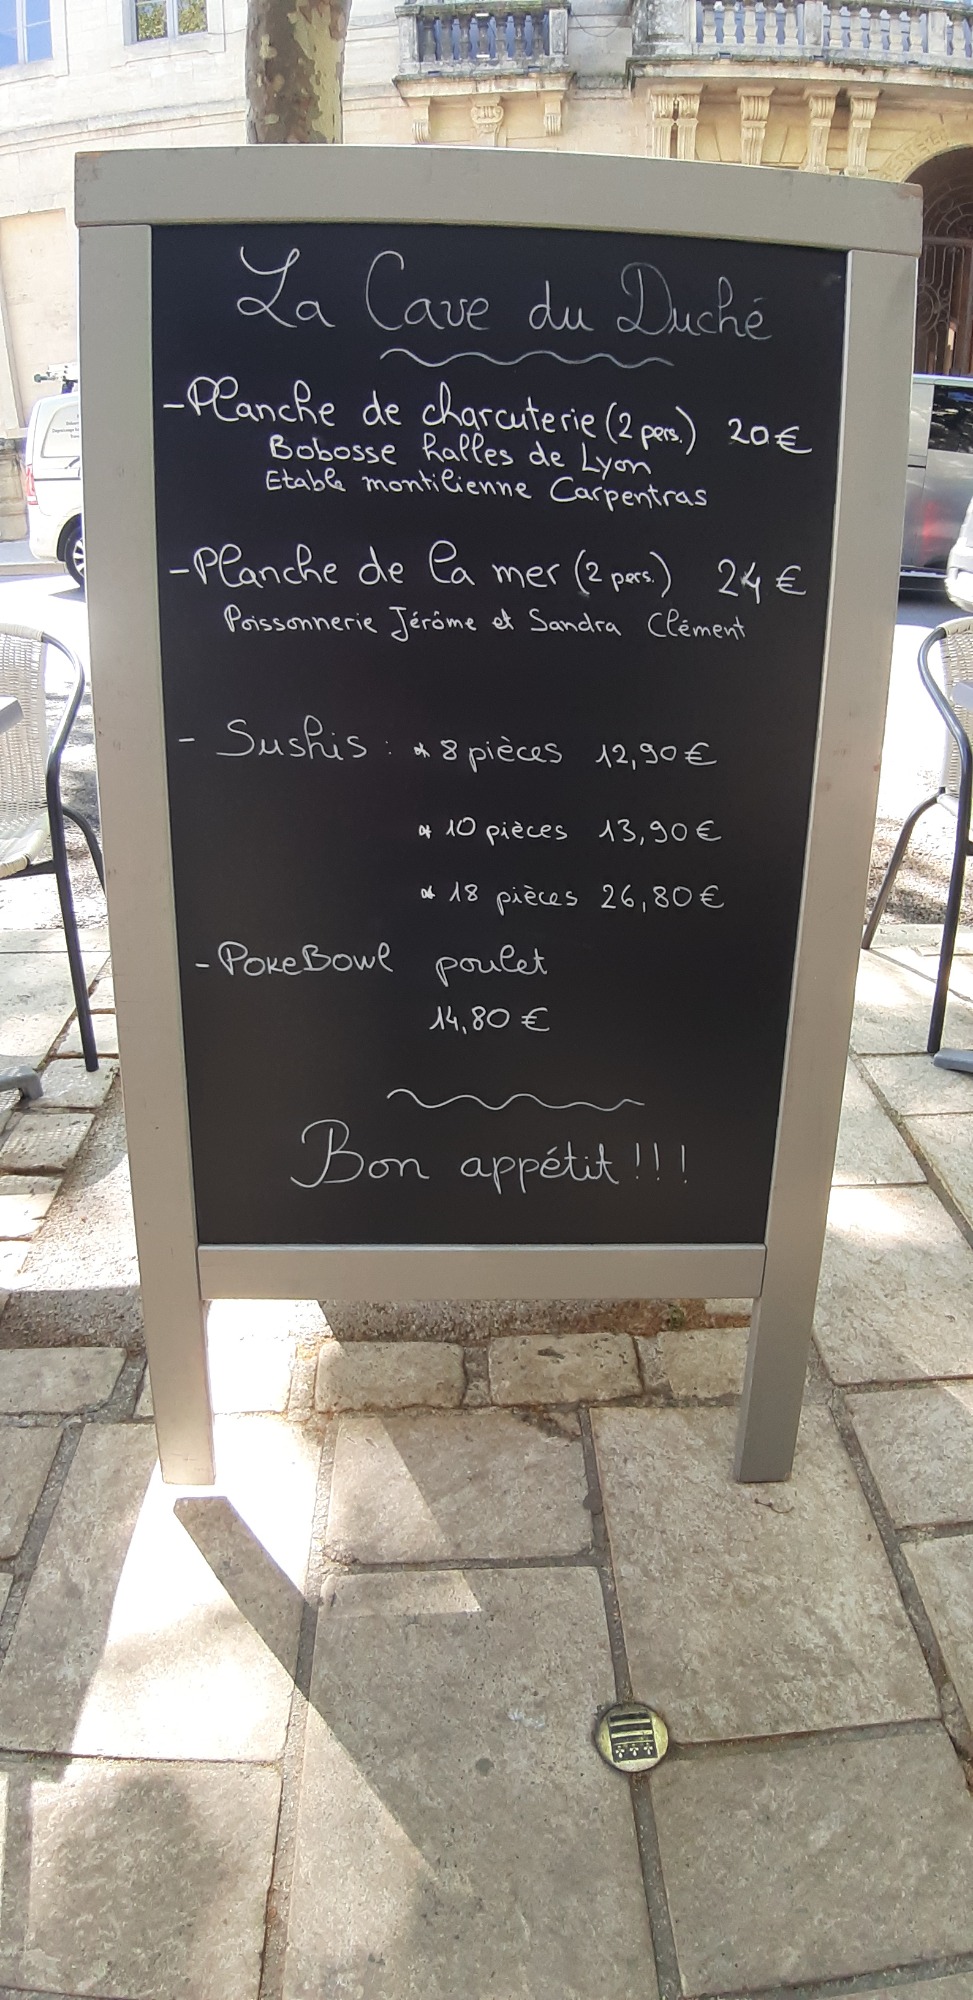 La Cave du Duché
- Planche de charcuterie (2 pers.) 20€
Bobosse halles de Lyon
Etable montilienne Carpentras
- Planche de la mer (2 pers.) 24€
Poissonnerie Jérôme et Sandra Clément
- Sushis : * 8 pièces 12,90€
* 10 pièces 13,90€
* 18 pièces 26,80€
- PokeBowl poulet
14,80 €
Bon appétit !!!